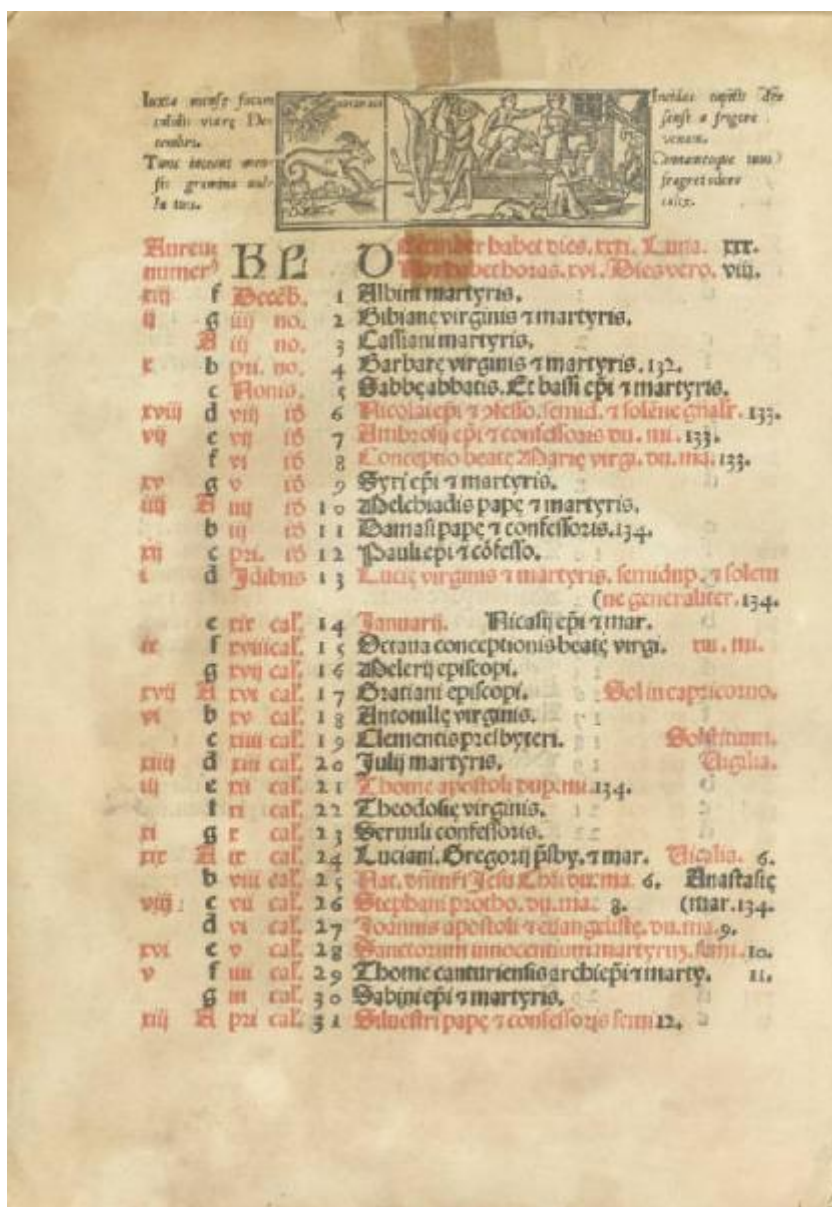 Aureus
numer⁹ KL December habet dies. xxxi. Luna. xxx.
Nox habet horas. xvi. Dies vero. viij.
xiij f Decēb. 1 Albini martyris.
ij g iiij no. 2 Bibianę virginis ⁊ martyris.
A iij no. 3 Cassiani martyris.
x b pri. no. 4 Barbarę virginis ⁊ martyris. 132.
c Nonis. 5 Sabbę abbatis. Et bassi ep̄i ⁊ martyris.
xviij d viij id 6 Nicolai ep̄i ⁊ ꝯfesso. semid. ⁊ solēne gnalr. 133.
vij e vij id 7 Ambrosij ep̄i ⁊ confessoris du. mi. 133.
f vi id 8 Conceptio beatę Marię virgi. du. ma. 133.
xv g v id 9 Syri ep̄i ⁊ martyris.
iiij A iiij id 10 Melchiadis papę ⁊ martyris.
b iij id 11 Damasi papę ⁊ confessoris. 134.
xij c pri. id 12 Pauli ep̄i ⁊ cōfesso.
i d Idibus 13 Lucię virginis ⁊ martyris. semidup. ⁊ solem
(ne generaliter. 134.
e xix cal. 14 Januarij. Nicasij ep̄i ⁊ mar.
ix f xviij cal. 15 Octaua conceptionis beatę virgi. du. mi.
g xvij cal. 16 Melerij episcopi.
xvij A xvi cal. 17 Gratiani episcopi. Sol in capricorno.
vi b xv cal. 18 Antonillę virginis.
c xiiij cal. 19 Clementis presbyteri. Solstitium.
xiiij d xiij cal. 20 Julij martyris. Vigilia.
iij e xij cal. 21 Thome apostoli dup. mi. 134.
f xi cal. 22 Theodosię virginis.
xi g x cal. 23 Seruuli confessoris.
xix A ix cal. 24 Luciani. Gregorij p̄sby. ⁊ mar. Vigilia. 6.
b viij cal. 25 Nat. dn̄i nr̄i Jesu Chri. du. ma. 6. Anastasię
viij c vij cal. 26 Stephani protho. du. ma. 8. (mar. 134.
d vi cal. 27 Joannis apostoli ⁊ euangelistę. du. ma. 9.
xvi e v cal. 28 Sanctorum innocentium martyrum. semi. 10.
v f iiij cal. 29 Thome canturiensis archiep̄i ⁊ marty. 11.
g iij cal. 30 Sabini ep̄i ⁊ martyris.
xiij A pri cal. 31 Siluestri papę ⁊ confessoris semi 12.